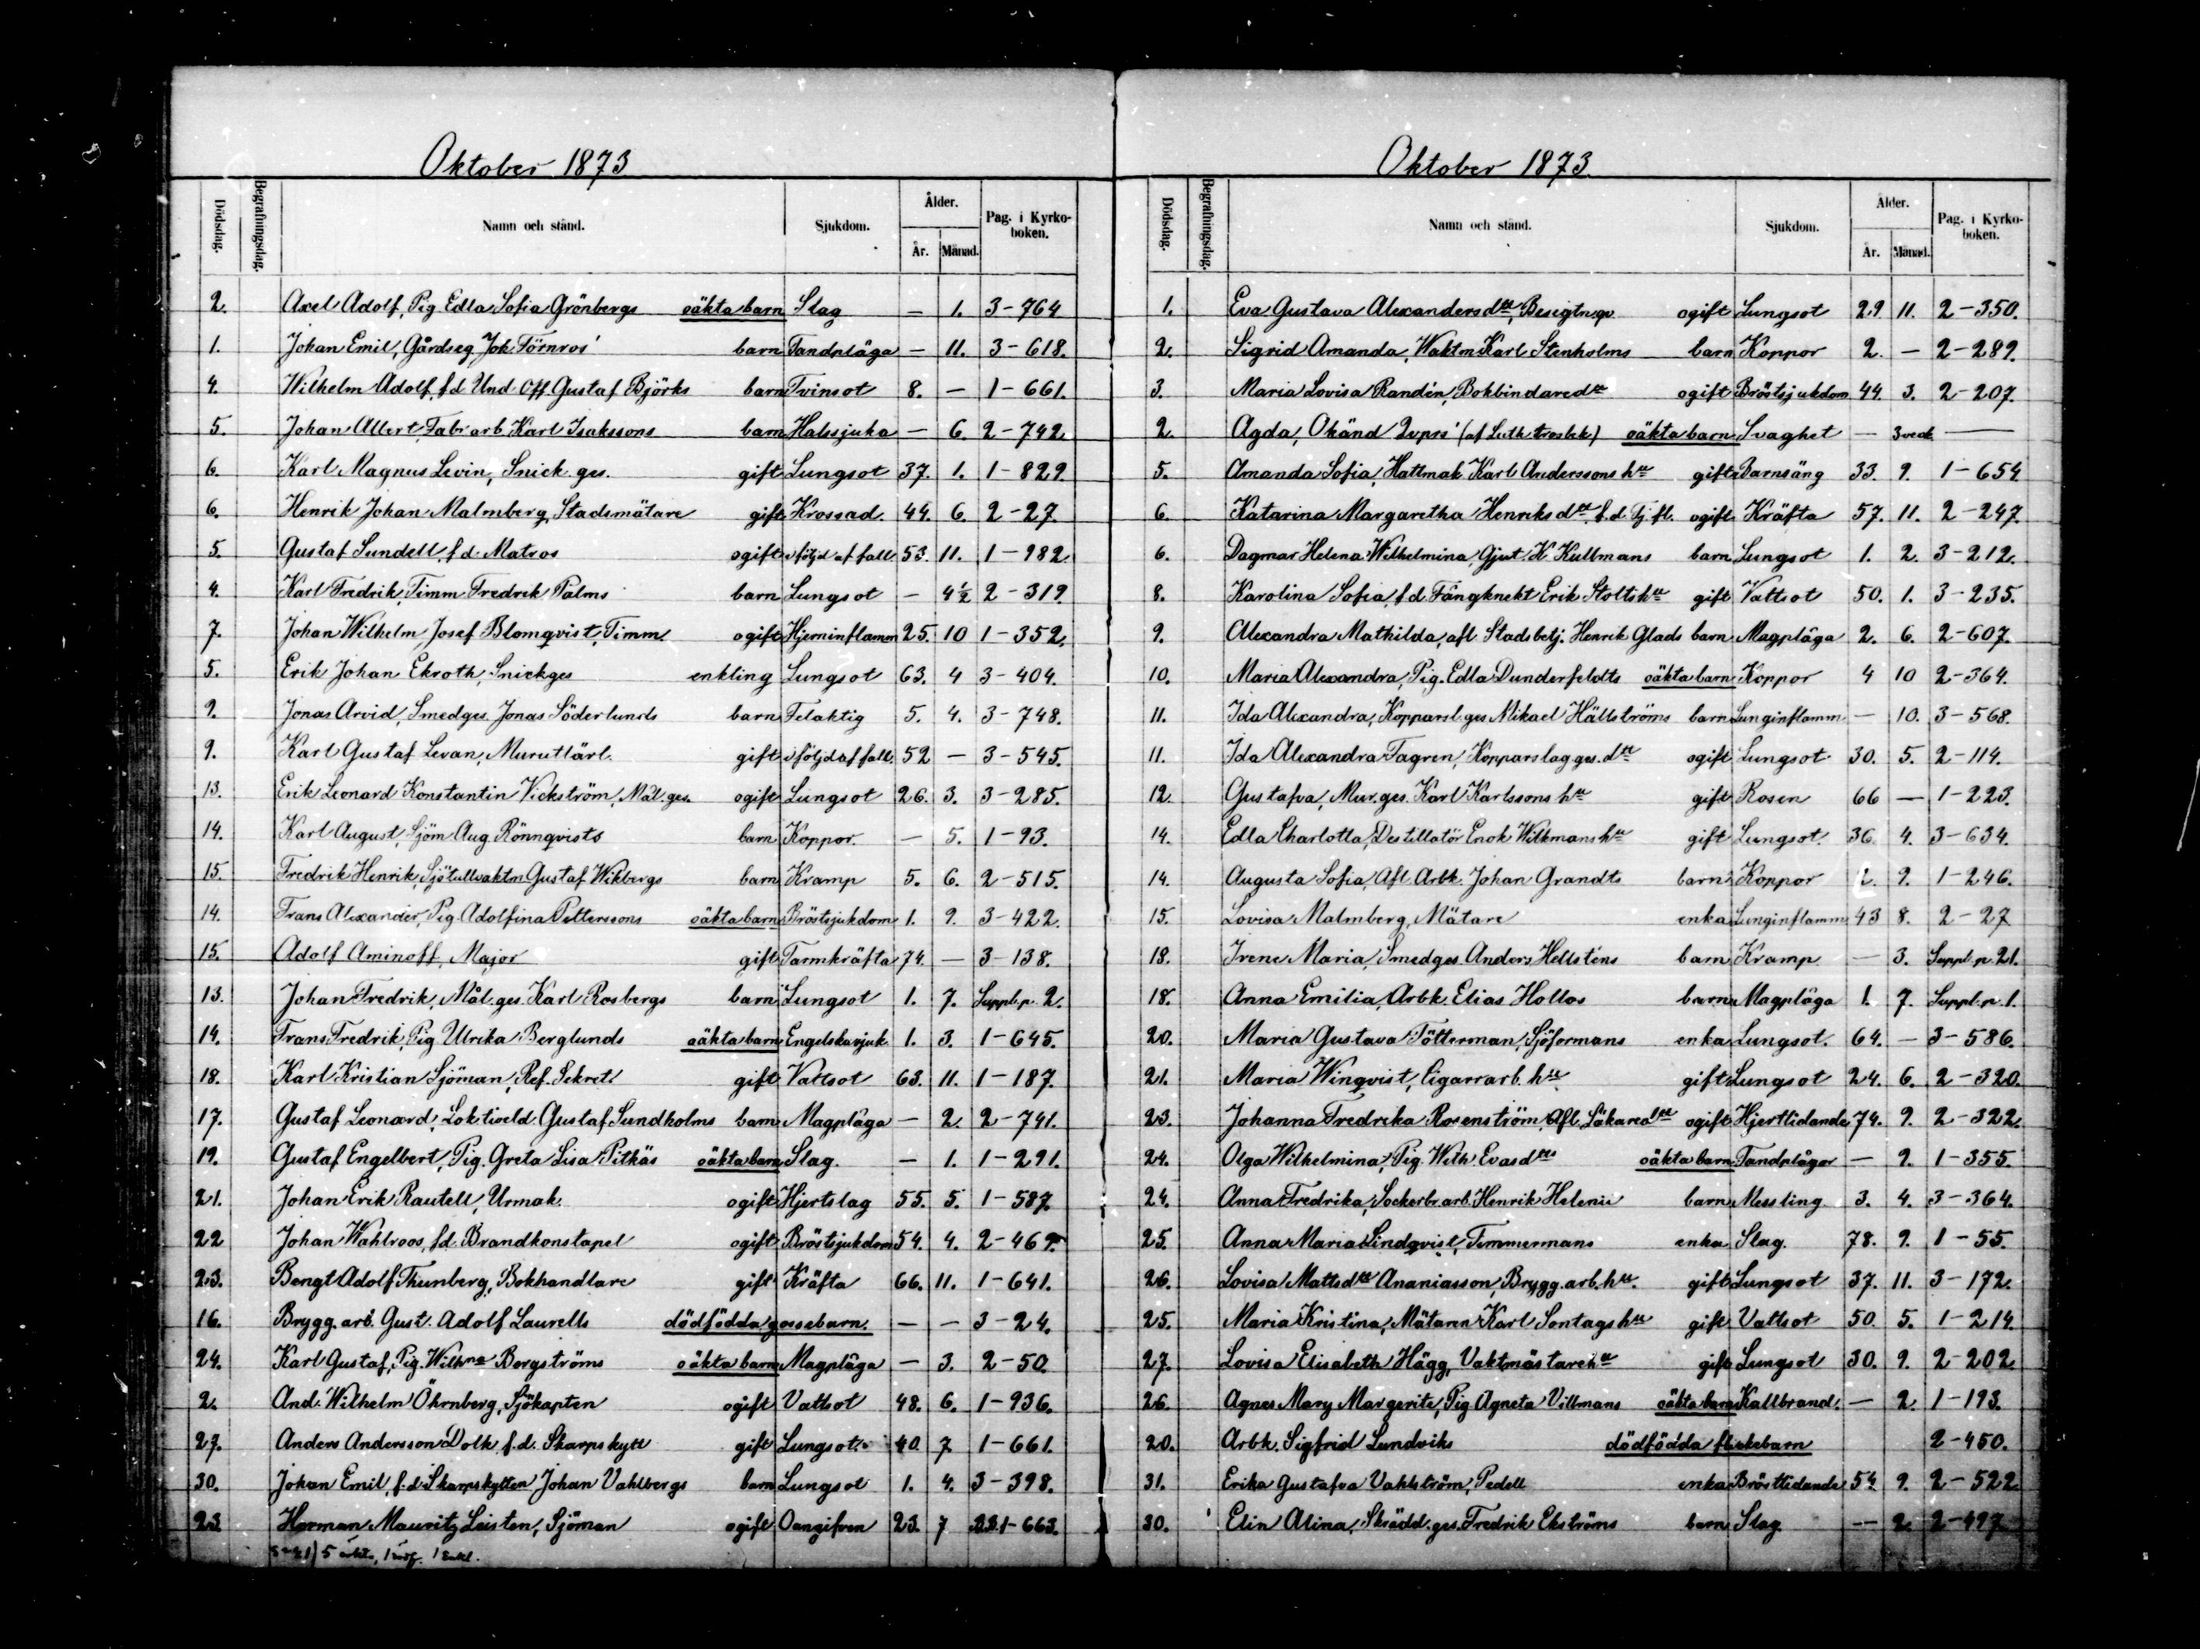 Oktober 1873
Dödsdag. Begrafningsdag. Namn och stånd. Sjukdom. Ålder. År. Månad. Pag. i Kyrkoboken.
2. Axel Adolf, Pig Edla Sofia Grönbergs oäkta barn Slag — 1. 3-764
1. Johan Emil, Gårdseg. Joh Törnros' barn Tandplåga — 11. 3-618.
4. Wilhelm Adolf, f.d. Und. Off. Gustaf Björks barn Tvinsot 8. — 1-661.
5. Johan Albert, Fabr arb Karl Isakssons barn Halssjuka — 6. 2-742
6. Karl Magnus Levin, Snick. ges. gift Lungsot 37. 1. 1-829.
6. Henrik Johan Malmberg, Stadsmätare gift Krossad. 44. 6. 2-27.
5. Gustaf Sundell, f.d. Matros ogift i följd af fall 53. 11. 1-982.
4. Karl Fredrik, Timm Fredrik Palms barn Lungsot — 4½ 2-319.
7. Johan Wilhelm Josef Blomqvist, Timm ogift Hjerninflamm 25. 10 1-352.
5. Erik Johan Ekroth, Snickges enkling Lungsot 63. 4 3-404.
9. Jonas Arvid, Smedges Jonas Söderlunds barn Felaktig 5. 4. 3-748.
9. Karl Gustaf Levan, Murutlärl. gift i följd af fall. 52 — 3-545.
13. Erik Leonard Konstantin Vickström, Mål. ges. ogift Lungsot 26. 3. 3-285.
14. Karl August, Sjöm Aug Rönnqvists barn Koppor. — 5. 1-93.
15. Fredrik Henrik, Sjötullvaktm Gustaf Wikbergs barn Kramp 5. 6. 2-515.
14. Frans Alexander, Pig Adolfina Petterssons oäkta barn Bröstsjukdom 1. 9. 3-422.
15. Adolf Aminoff, Major gift Tarmkräfta 74. — 3-138.
13. Johan Fredrik, Mål. ges. Karl Rosbergs barn Lungsot 1. 7. Suppl. p. 2.
14. Frans Fredrik, Pig Ulrika Berglunds oäkta barn Engelskasjuk. 1. 3. 1-645.
18. Karl Kristian Sjöman, Ref. Sekret. gift Vattsot 63. 11. 1-187.
17. Gustaf Leonard, Lokticeld. Gustaf Sundholms barn Magplåga — 2. 2-741.
19. Gustaf Engelbert, Pig. Greta Lisa Pitkäs oäkta barn Slag. — 1. 1-291.
21. Johan Erik Rautell, Urmak. ogift Hjertslag 55. 5. 1-587.
22 Johan Wahlroos, f.d. Brandkonstapel ogift Bröstsjukdom 54. 4. 2-469.
23. Bengt Adolf Thunberg, Bokhandlare gift Kräfta 66. 11. 1-641.
16. Brygg. arb. Gust. Adolf Laurells dödfödda gossebarn. — — 3-24.
24. Karl Gustaf, Pig. Wilhna Bergströms oäkta barn Magplåga — 3. 2-50.
2. And. Wilhelm Öhrnberg, Sjökapten ogift Vattsot 48. 6. 1-936.
27. Anders Andersson Dolk, f.d. Skarpskytt gift Lungsot. 40. 7 1-661.
30. Johan Emil, f.d. Skarpskytten Johan Vahlbergs barn Lungsot 1. 4. 3-398.
23 Herman Mauritz Leisten, Sjöman ogift Oangifven 23. 7 1-663.
Oktober 1873.
Dödsdag. Begrafningsdag. Namn och stånd. Sjukdom. Ålder. År. Månad. Pag. i Kyrkoboken.
1. Eva Gustava Alexandersdtr, Besigtn.qv. ogift Lungsot 29. 11. 2-350.
2. Sigrid Amanda, Waktm Karl Stenholms barn Koppor 2. — 2-289.
3. Maria Lovisa Randén, Bokbindaredtr ogift Bröstsjukdom 44. 3. 2-207.
2. Agda, Okänd Qvprs' (af Luth. trosbek.) oäkta barn Svaghet — 3 veck —
5. Amanda Sofia, Hattmak Karl Anderssons hu gift Barnsäng 33. 9. 1-654.
6. Katarina Margaretha Henriksdtr, f.d. Tj. fl. ogift Kräfta 57. 11. 2-247.
6. Dagmar Helena Wilhelmina, Gjut. K Kullmans barn Lungsot 1. 2. 3-212.
8. Karolina Sofia, f.d. Fångknekt Erik Stolts hu gift Vattsot 50. 1. 3-235.
9. Alexandra Mathilda, afl. Stadsbetj. Henrik Glads barn Magplåga 2. 6. 2-607.
10. Maria Alexandra, Pig. Edla Dunderfeldts oäkta barn Koppor 4 10 2-364.
11. Ida Alexandra, Kopparsl. ges Mikael Hällströms barn Lunginflamm. — 10. 3-568.
11. Ida Alexandra Fagren, Kopparslag. ges. dtr ogift Lungsot 30. 5. 2-114.
12. Gustafva, Mur. ges. Karl Karlssons hu gift Rosen 66 — 1-223.
14. Edla Charlotta, Destillatör Enok Wilkmans hu gift Lungsot. 36. 4. 3-634.
14. Augusta Sofia, Afl. Arbk. Johan Grandts barn Koppor 2. 9. 1-246.
15. Lovisa Malmberg, Mätare enka Lunginflamm. 43 8. 2-27
18. Irene Maria, Smedges. Anders Hellsténs barn Kramp — 3. Suppl. p. 21.
18. Anna Emilia, Arbk. Elias Hollos barn Magplåga 1. 7. Suppl. p. 1.
20. Maria Gustava Fötterman, Sjöformans enka Lungsot. 64. — 3-586.
21. Maria Winqvist, Cigarrarb. hu gift Lungsot 24. 6. 2-320.
23. Johanna Fredrika Rosenström, Afl. Läkaredtr ogift Hjertlidande 74. 9. 2-322.
24. Olga Wilhelmina, Pig. Wilh Evasdtrs oäkta barn Tandplågor — 9. 1-355.
24. Anna Fredrika, Sockerbr. arb. Henrik Helenii barn Messling 3. 4. 3-364.
25. Anna Maria Lindqvist, Timmermans enka Slag. 78. 9. 1-55.
26. Lovisa Mattsdtr Ananiasson, Brygg. arb. hu. gift Lungsot 37. 11. 3-172.
25. Maria Kristina, Mätaren Karl Sontags hu gift Vattsot 50. 5. 1-214.
27. Lovisa Elisabeth Hägg, Vaktmästare hu gift Lungsot 30. 9. 2-202.
26. Agnes Mary Margerite, Pig Agneta Villmans oäkta barn Kallbrand. — 2. 1-193.
20. Arbk. Sigfrid Lundviks dödfödda flickebarn 2-450.
31. Erika Gustafva Vahlström, Pedell enka Bröstlidande 54. 9. 2-522
30. Elin Alina, Skrädd. ges. Fredrik Ekströms barn Slag — 2. 2-497